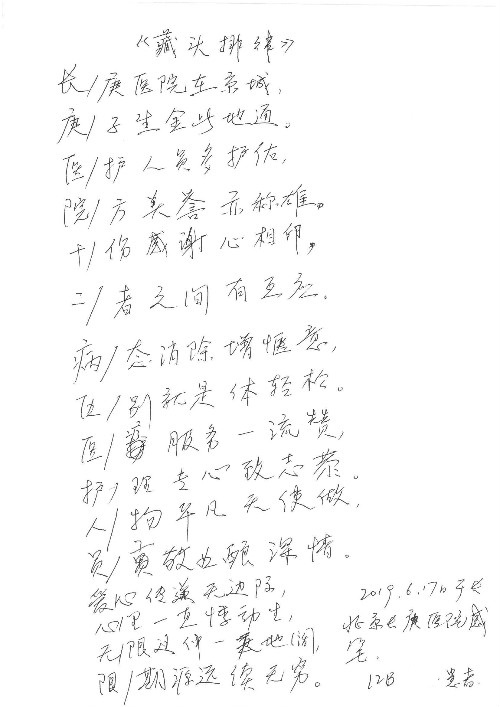 《藏头排律》
长/庚医院在京城,
庚/子生金此地通。
医/护人员多护佑,
院/方美誉亦称雄。
十/伤感谢心相印,
二/者之间有互应.
病/态消除增惬意,
区/别就是体轻松。
医/务服务一流赞,
护/理专心致志恭。
人/物平凡天使做,
员/责敬业酿深情。
爱心使美无边际,
心里一直悸动生,
无限这份一天地间,
限/期源远续无穷。
2019.6.17日于
北京长庚医院感
笔.
12B 患者